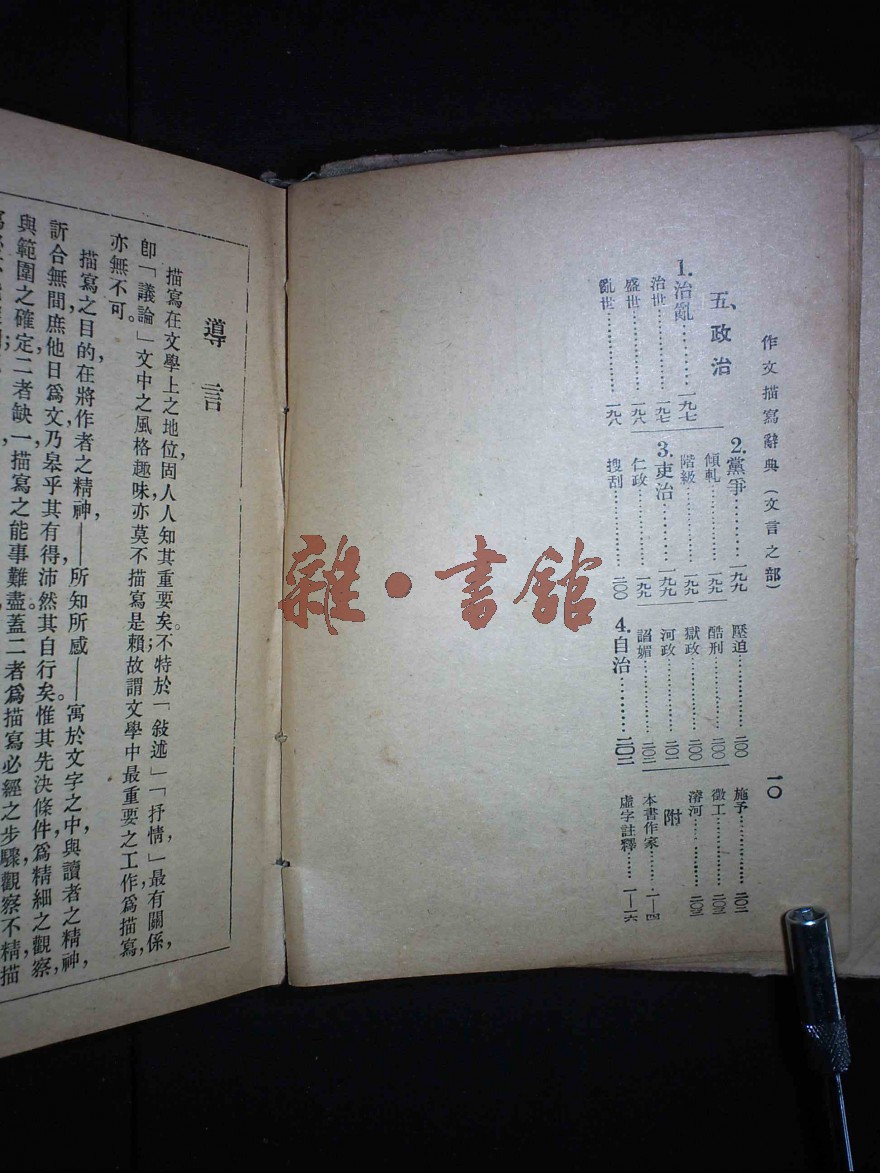 作文描寫辭典(文言之部)
一〇
五、政治
1.治亂………一九七
治世………一九七
盛世………一九八
亂世………一九八
2.黨爭………一九九
傾軋………一九九
階級………一九九
3.吏治………一九九
仁政………一九九
搜刮………二〇〇
壓迫………二〇〇
酷刑………二〇〇
獄政………二〇〇
河政………二〇二
諂媚………二〇二
4.自治………二〇二
施予………二〇二
徵工………二〇三
濬河………二〇三
附
本書作家……一—四
虛字註釋……一—一六
導言
描寫在文學上之地位,固人人知其重要矣。不特於「敍述」「抒情」,最有關係,
卽「議論」文中之風格趣味,亦莫不描寫是賴;故謂文學中最重要之工作爲描寫,
亦無不可。
描寫之目的,在將作者之精神,——所知所感——寓於文字之中,與讀者之精神,
訢合無間,庶他日爲文,乃皋乎其有得,沛然其自行矣。惟其先決條件,爲精細之觀察,
與範圍之確定,二者缺一,描寫之能事難盡。蓋二者爲描寫必經之步驟,觀察不精,描
雜·書館